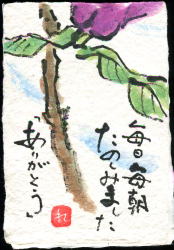 毎日毎朝
たのしみました
「ありがとう」